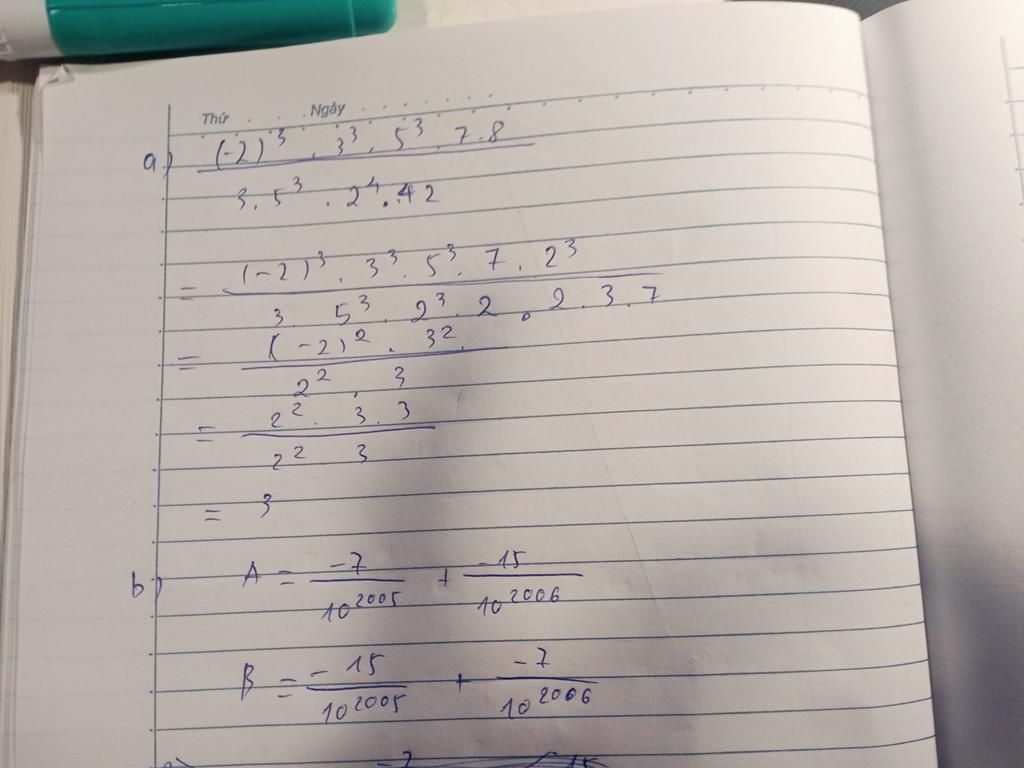 Thứ Ngày
a) (-2)³ . 3³ . 5³ . 7 . 8
3 . 5³ . 2⁴ . 42
= (-2)³ . 3³ . 5³ . 7 . 2³
3 . 5³ . 2³ . 2 . 2 . 3 . 7
= (-2)² . 3²
2² . 3
= 2² . 3 . 3
2² 3
= 3
b) A = -7/10²⁰⁰⁵ + -15/10²⁰⁰⁶
B = -15/10²⁰⁰⁵ + -7/10²⁰⁰⁶